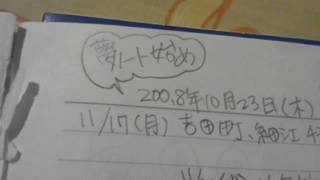 夢ノート始め
2008年10月23日(木)
11/17(月) 吉田町、細江
11/